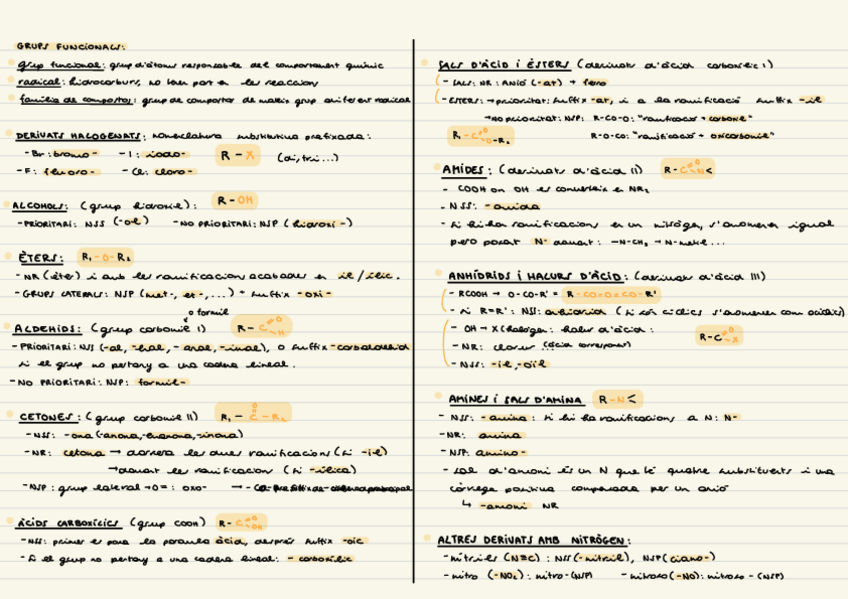 GRUPS FUNCIONALS:
grup funcional: grup d'àtoms responsable del comportament químic
radical: hidrocarburs, no tenen part en les reaccions
família de compostos: grup de compostos de mateix grup diferent radical
DERIVATS HALOGENATS: nomenclatura substitutiva prefixada:
-Br: bromo- -I: iodo- R-X (di, tri...)
-F: fluoro- -Cl: cloro-
ALCOHOLS: (grup hidroxil): R-OH
-PRIORITARI: NSS (-ol) -NO PRIORITARI: NSP (hidroxi-)
ÈTERS: R₁-O-R₂
-NR (èter) i amb les ramificacions acabades en il/ílic.
-GRUPS LATERALS: NSP (met-, et-,...) + suffix -oxi-
formil
ALDEHIDS: (grup carbonil I) R-C=O-H
-PRIORITARI: NSS (-al, -enal, -inal), o suffix -carbaldehid
si el grup no pertany a una cadena lineal.
-NO PRIORITARI: NSP: formil-
CETONES: (grup carbonil II) R₁-C=O-R₂
-NSS: -ona (-anona, -enona, -inona)
-NR: cetona → darrera les dues ramificacions (si -il)
→ davant les ramificacions (si -ílica)
-NSP: grup lateral → O=: oxo-
ÀCIDS CARBOXÍLICS (grup COOH) R-C=O-OH
-NSS: primer es posa la paraula àcid, després suffix -oic
-Si el grup no pertany a una cadena lineal: -carboxílic
SALS D'ÀCID I ÈSTERS (derivats d'àcid carboxílic I)
-SALS: NR: ANIÓ (-at) +
-ESTERS: → prioritat: suffix -at, i a la ramificació suffix -il
→ no prioritat: NSP: R-CO-O: "ramificació + carbonil"
R-C=O-O-R₂ R-O-CO: "ramificació + oxicarbonil"
AMIDES: (derivats d'àcid II) R-C=O-N<
- COOH on OH es converteix en NR₂
- NSS: -amida
- Si hi ha ramificacions en un nitrogen, s'anomenen igual
però posant N- davant: -N-CH₃ → N-metil...
ANHÍDRIDS I HALURS D'ÀCID: (derivats d'àcid III)
- RCOOH → O-CO-R' = R-CO-O-CO-R'
- si R=R': NSS: anhídrid (si són cíclics s'anomenen com acíclics)
- OH → X (halogen: halur d'àcid: R-C=O-X
- NR: clorur (àcid corresponent)
- NSS: -il, -oil
AMINES I SALS D'AMINA R-N<
- NSS: -amina: si hi ha ramificacions a N: N-
-NR: amina
-NSP: amino-
- sal d'amoni és un N que té quatre substituents i una
càrrega positiva compensada per un anió
↳ -amoni NR
ALTRES DERIVATS AMB NITRÒGEN:
-nitrils (N≡C): NSS (-nitril), NSP (ciano-)
-nitro (-NO₂): nitro- (NSP) -nitroso (-NO): nitroso- (NSP)